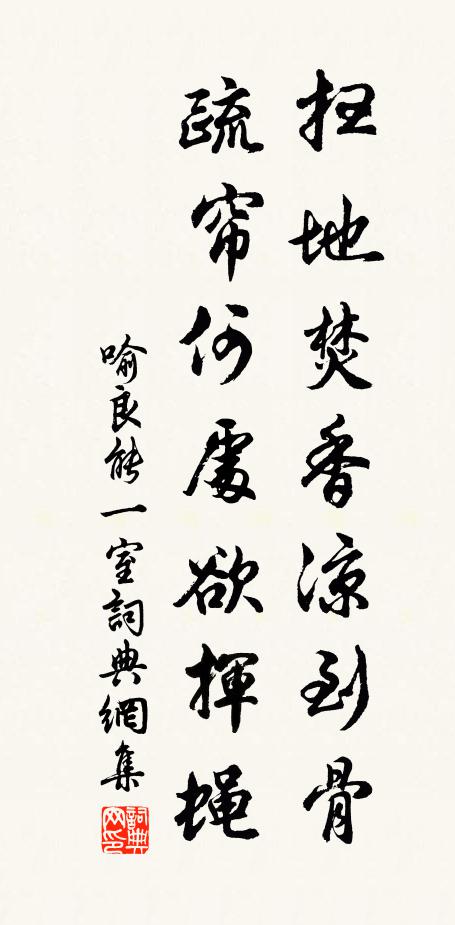 扫地焚香涼到骨
疏帘何處欲揮蝇
喻良能一室詞典網集
詞典网印